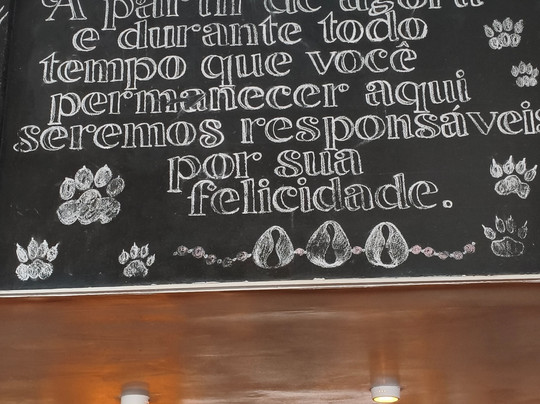 A partir de agora
e durante todo
tempo que você
permanecer aqui
seremos responsáveis
por sua
felicidade.